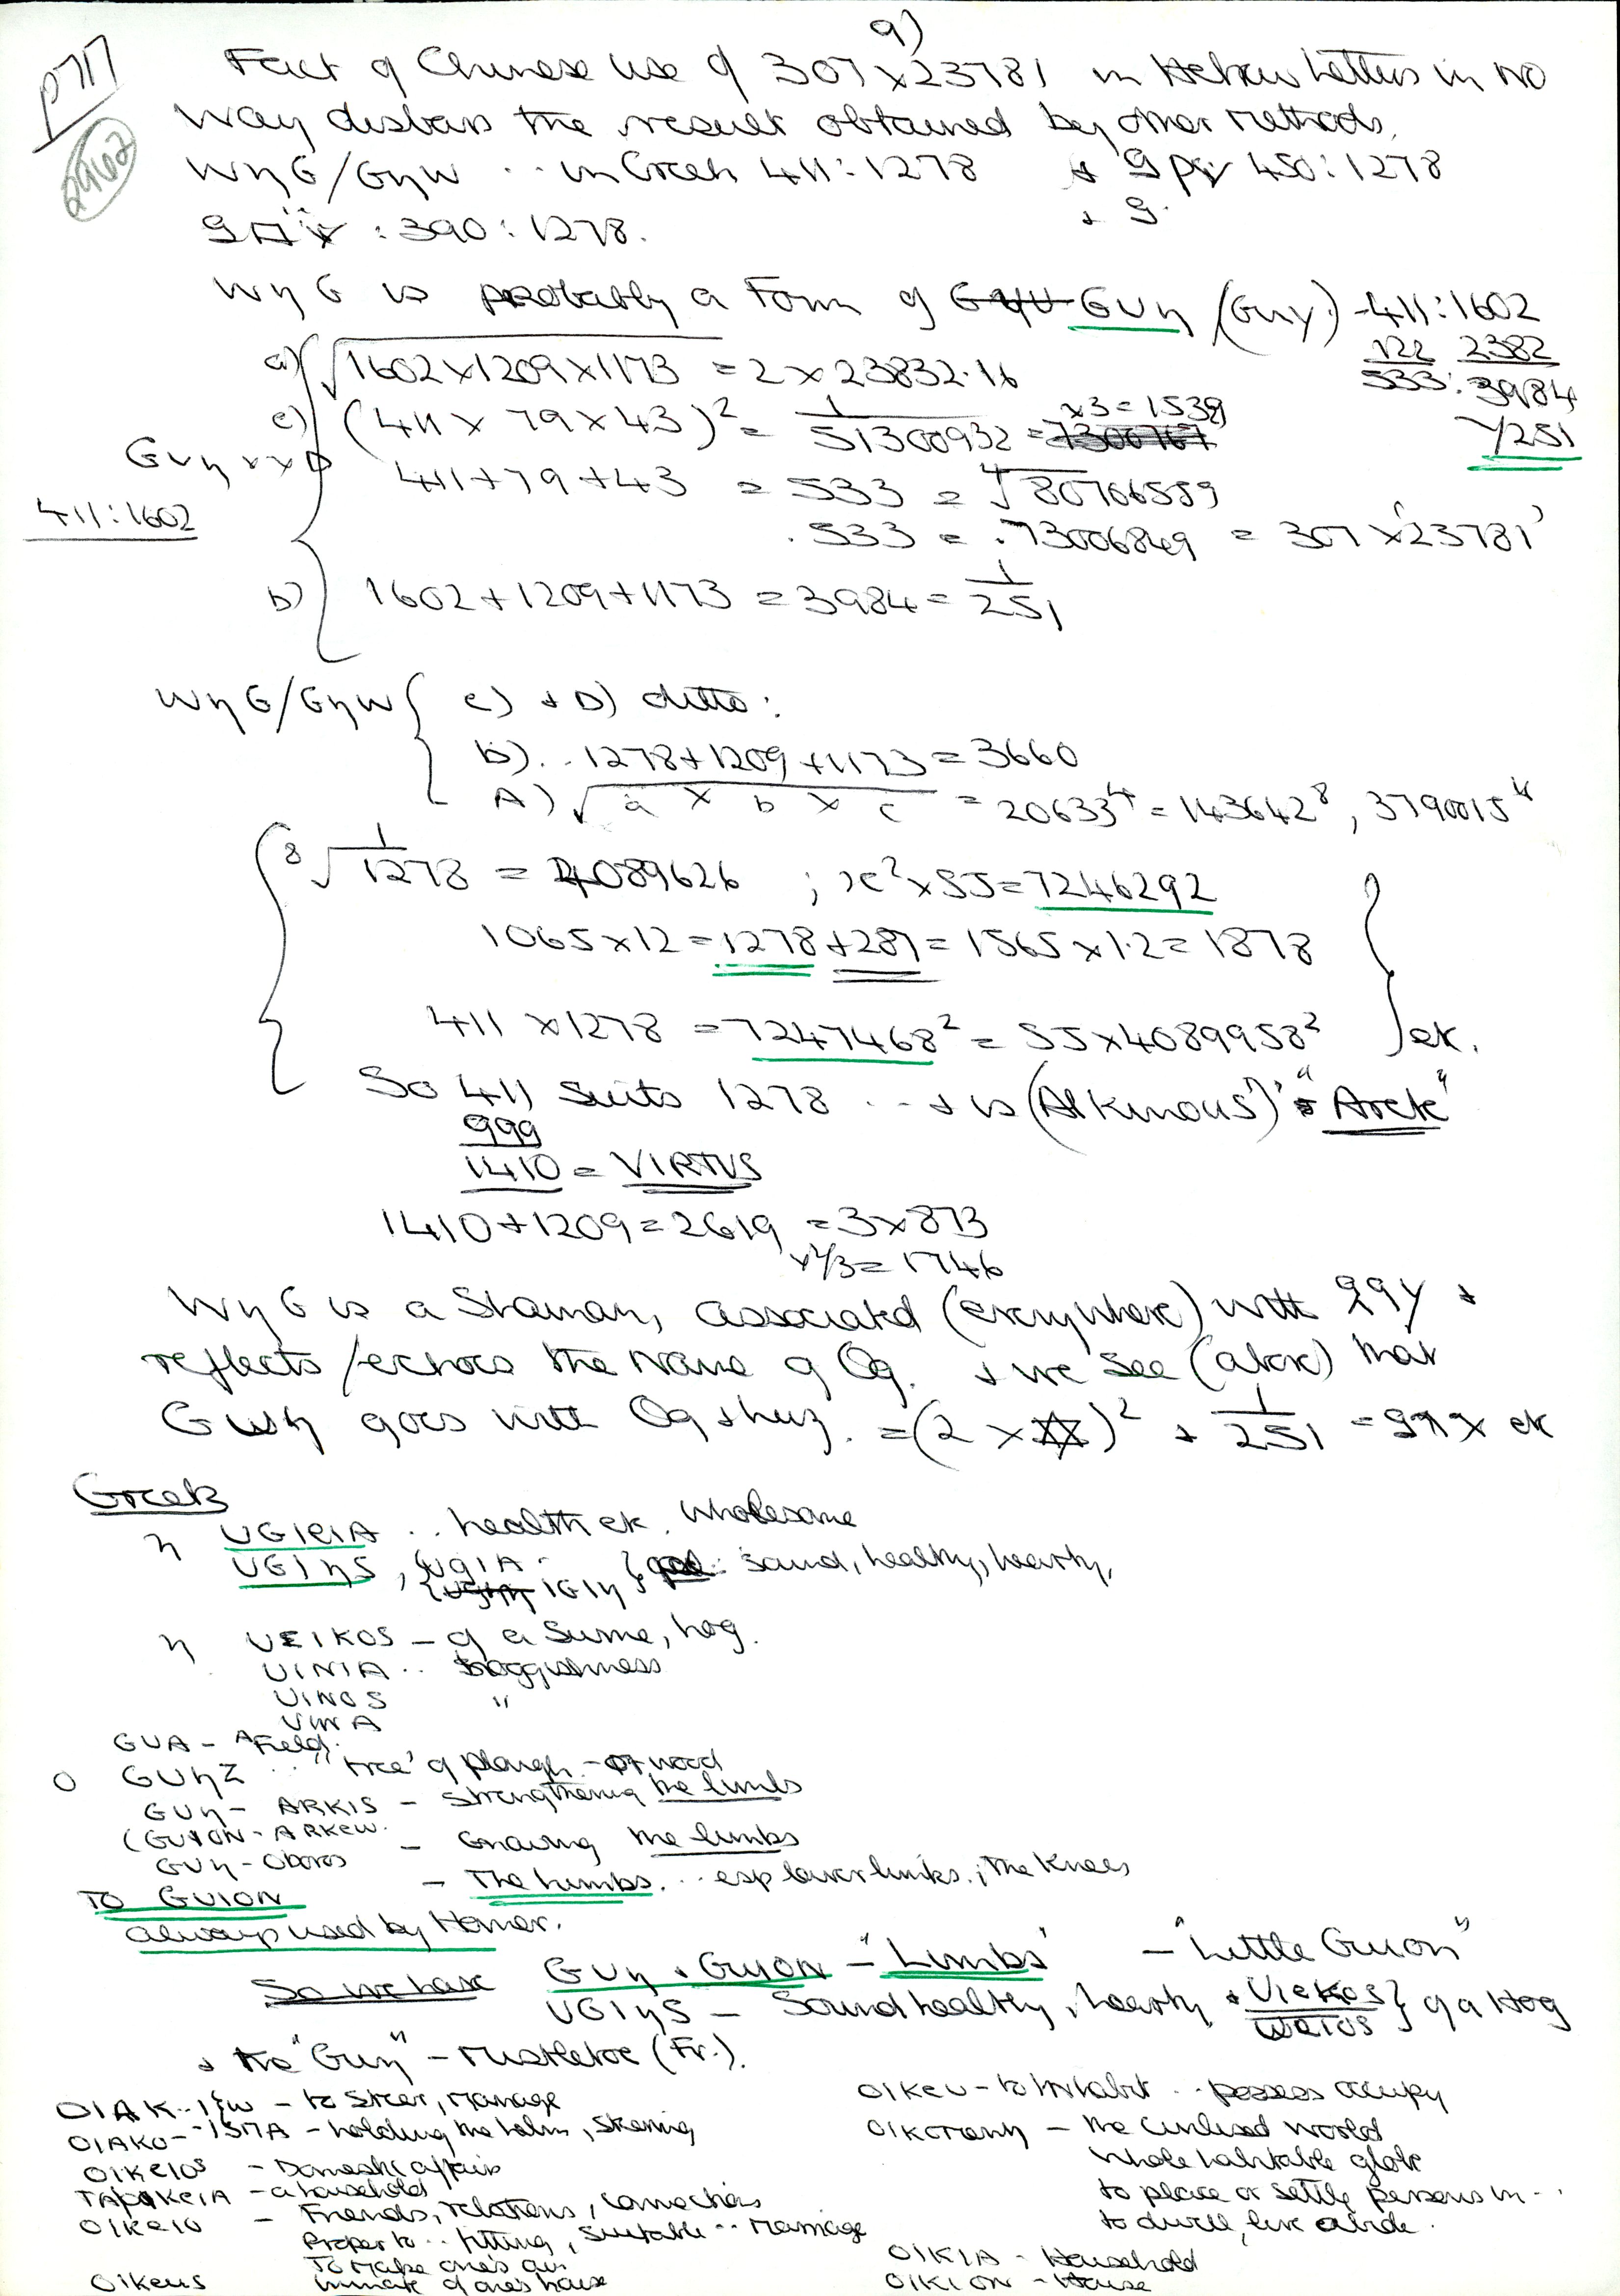 a)
p717
29602
Fact of Chinese use of 307 x 23781 in Hebrew Letters in no
way disbars the result obtained by other methods.
WηG/GηW .. in Greek 411:1278
+ 450:1278
: 390:1278.
WηG is probably a Form of GUη (Guy) - 411:1602
122 2382
533: 3984
1/251
a) √1602x1209x1173 = 2 x 23832.16
c) (411 x 79 x 43)² = 1/51300932 = x3 = 1539
GUη
411:1602
411+79+43 = 533 = ∜80706559
.533 = .73006849 = 307 x '23781'
b) 1602+1209+1173 = 3984 = 1/251
WηG/GηW { c) + D) ditto:
b). .. 1278+1209+1173 = 3660
A) √a x b x c = 20633⁴ = 143642⁸, 3790015⁴
⁸√1/1278 = 4089626 ; x² x 55 = 7246292
1065x12 = 1278+287 = 1565x1.2 = 1878
411 x 1278 = 7247468² = 55x4089958² } etc.
So 411 suits 1278 ... + is (Alkinous') "Arete"
999
1410 = VIRTUS
1410+1209 = 2619 = 3x873
x 2/3 = 1746
WηG is a Shaman, associated (everywhere) with +
reflects/echoes the Name of Og. + we see (above) that
goes with Og + = (2 x ✡)² + 1/251 = etc
Greek
η UGIEIA .. health etc. wholesome
UGIηS, {UGIA. IGIη} sound, healthy, hearty,
η UEIKOS - of a Swine, hog.
UINIA .. hoggishness
UINOS "
UINA
GUA - A Field.
O GUηZ .. "tree' of plough - of wood
GUη - ARKIS - Strengthening the limbs
(GUION - ARKEW.
GUη - Oboros - Gnawing the limbs
TO GUION - The Limbs. .. esp lower limbs.; the knees
always used by Homer.
So we have GUη + GUION - "Limbs' - "Little Guion"
UGIηS - Sound healthy, hearty + } of a Hog
+ the "Guy" - Mistletoe (Fr.).
OIAK..IZw - to steer, manage
OIAKO - ISMA - holding the helm, steering
OIKEIOS - Domestic affairs
- a household
OIKEIO - Friends, relations, connections
Proper to .. fitting, suitable .. Marriage
To make one's own
OIKEUS inmate of one's house
OIKEU - to inhabit .. possess occupy
- the civilised world
whole habitable globe
to place or settle persons in ..
to dwell, live abide.
OIKIA - Household
OIKION - House